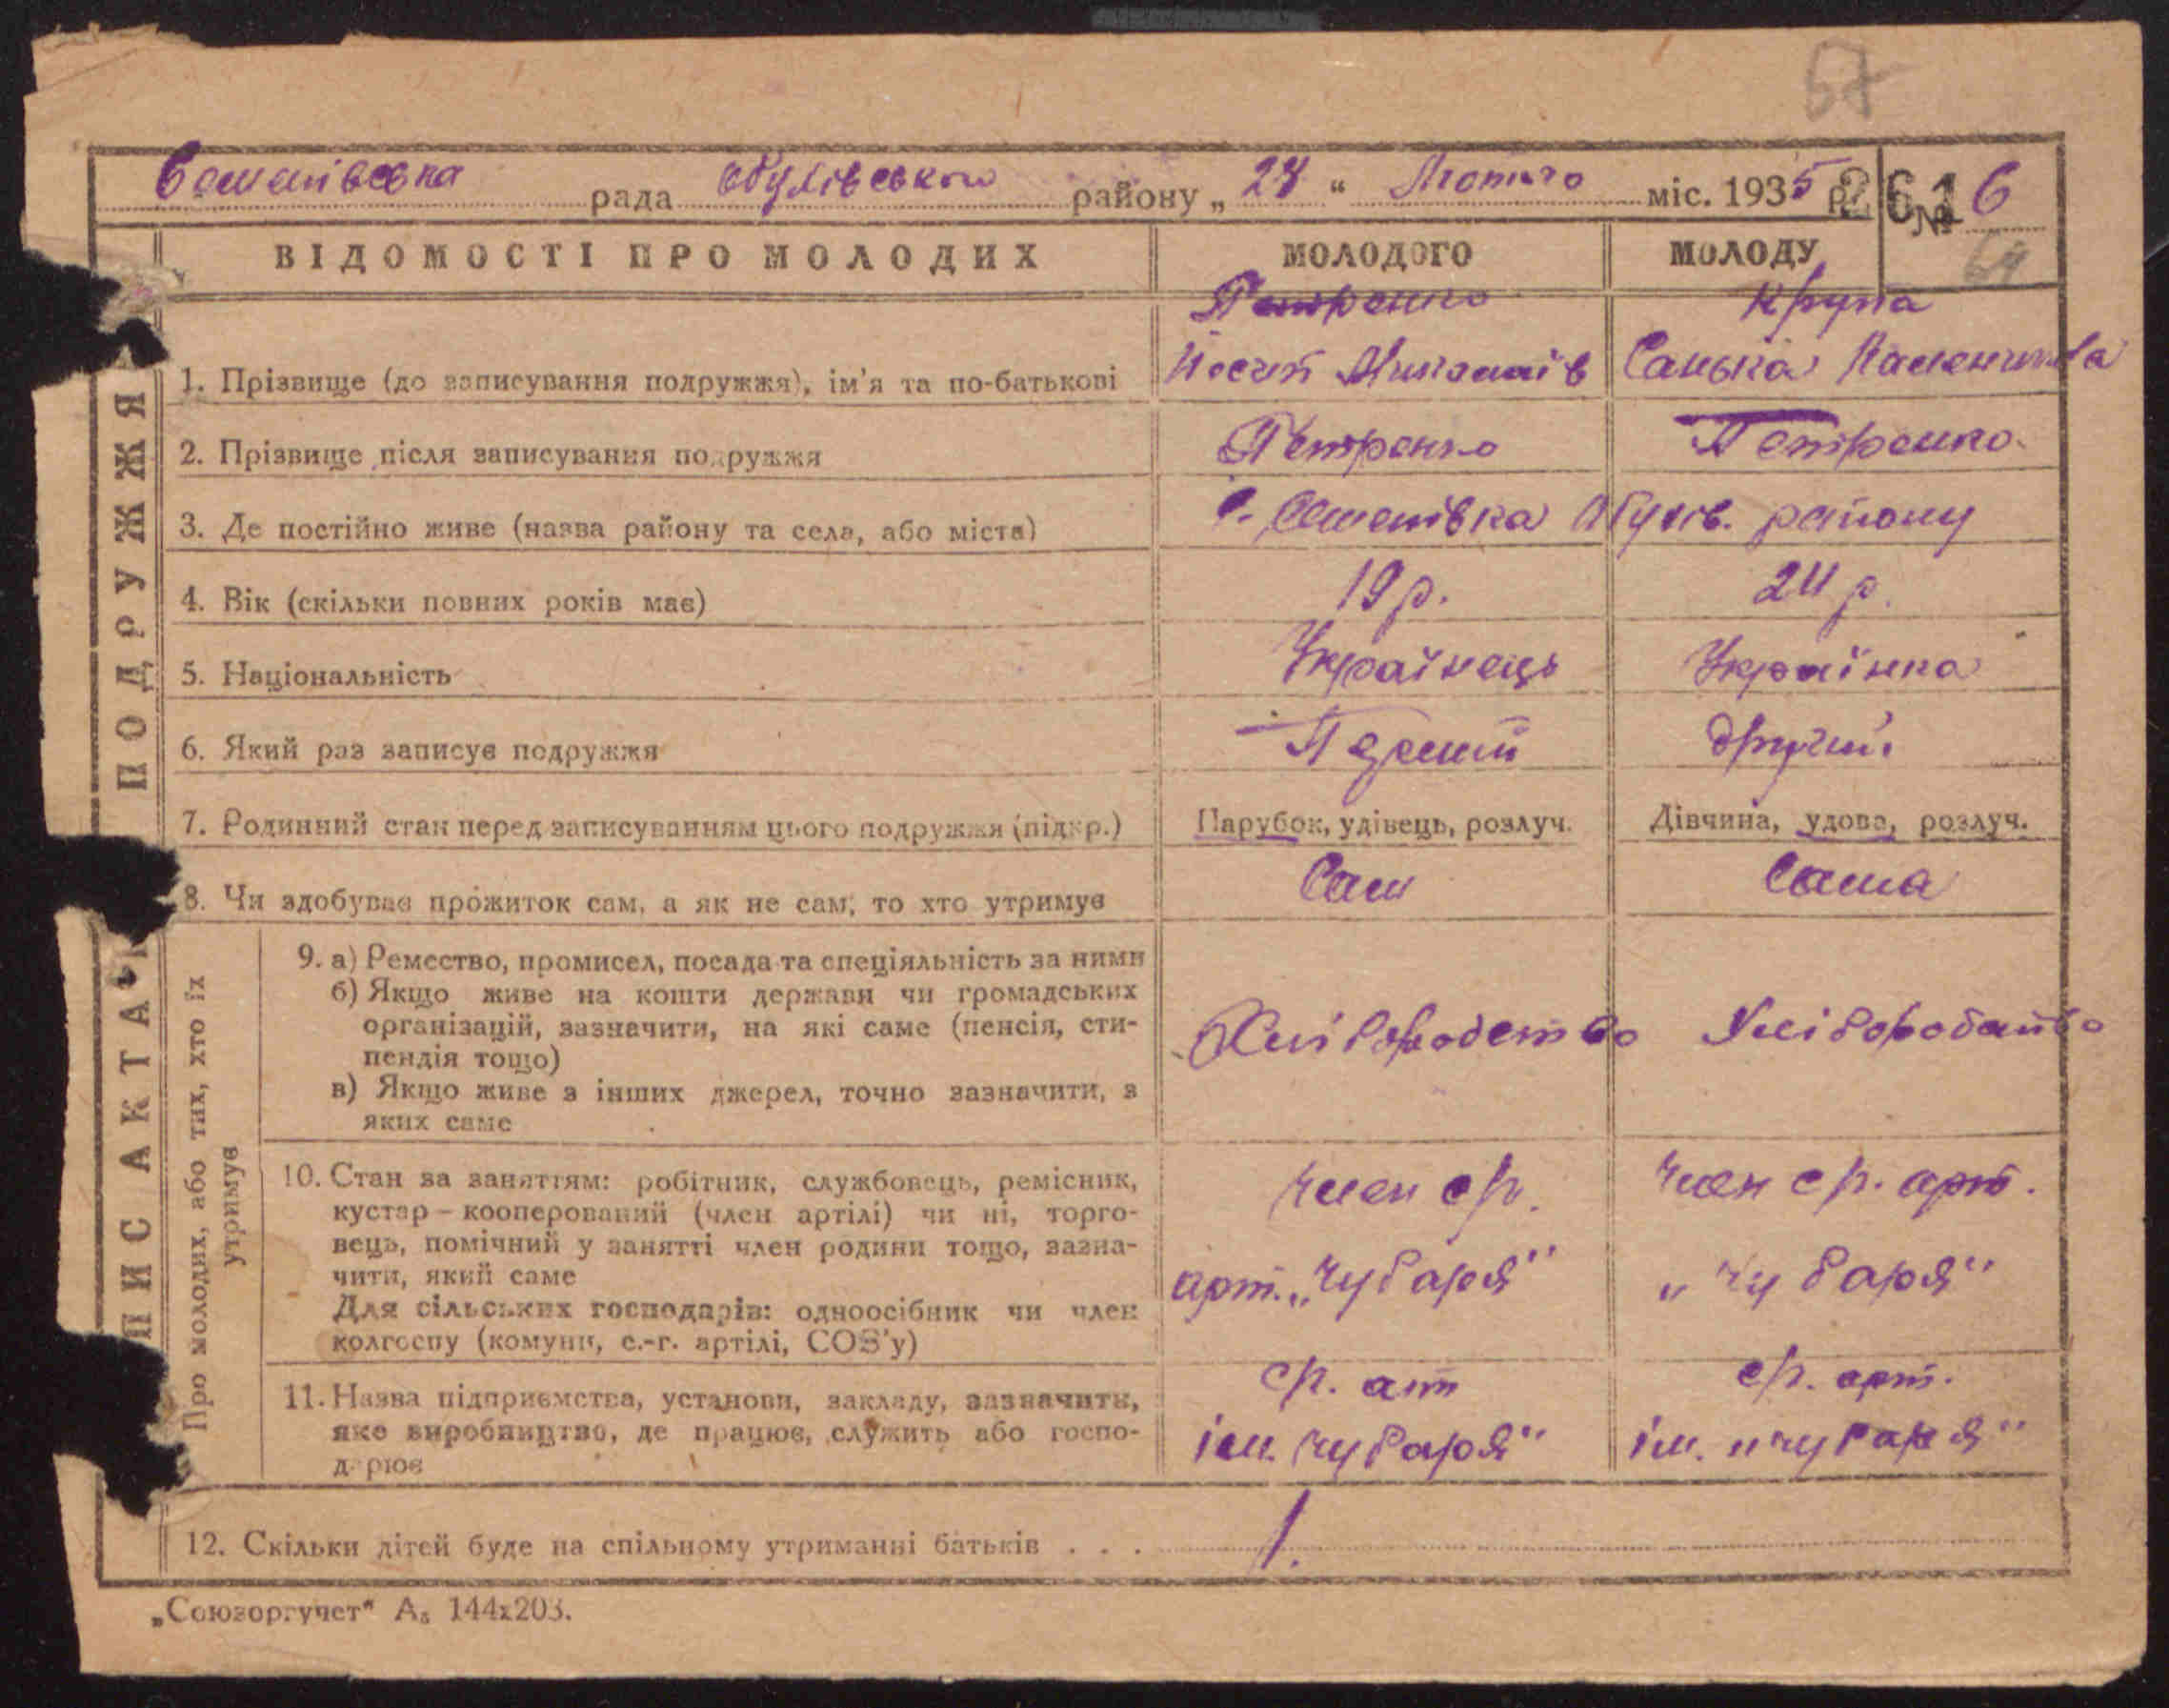 57
Семенівська рада Обухівського району „ 28 “ Лютого міс. 1935 р. № 6
261
64
ВІДОМОСТІ ПРО МОЛОДИХ МОЛОДОГО МОЛОДУ
Петренко Крупа
1. Прізвище (до записування подружжя), ім’я та по-батькові Йосип Санька
2. Прізвище після записування подружжя Петренко Петренко
3. Де постійно живе (назва району та села, або міста) с. Семенівка району
4. Вік (скільки повних років має) 19 р. 24 р.
5. Національність Українець Українка
6. Який раз записує подружжя Перший другий
7. Родинний стан перед записуванням цього подружжя (підкр.) Парубок, удівець, розлуч. Дівчина, удова, розлуч.
8. Чи здобуває прожиток сам, а як не сам, то хто утримує Сам Сама
ПИС АКТА
ПОДРУЖЖЯ
Про молодих, або тих, хто їх
утримує
9. а) Ремество, промисел, посада та спеціяльність за ними
б) Якщо живе на кошти держави чи громадських
організацій, зазначити, на які саме (пенсія, сти-
пендія тощо)
в) Якщо живе з інших джерел, точно зазначити, з
яких саме
10. Стан за заняттям: робітник, службовець, ремісник, член ср. член ср. арт.
кустар – кооперований (член артілі) чи ні, торго-
вець, помічний у занятті член родини тощо, зазна-
чити, який саме арт. „Чубаря“ „Чубаря“
Для сільських господарів: одноосібник чи член
колгоспу (комуни, с.-г. артілі, СОЗ’у)
11. Назва підприємства, установи, закладу, зазначити, ср. арт. ср. арт.
яке виробництво, де працює, служить або госпо- ім. Чубаря“ ім. „Чубаря“
дарює
12. Скільки дітей буде на спільному утриманні батьків . . . 1.
„Союзоргучет“ А₅ 144х203.